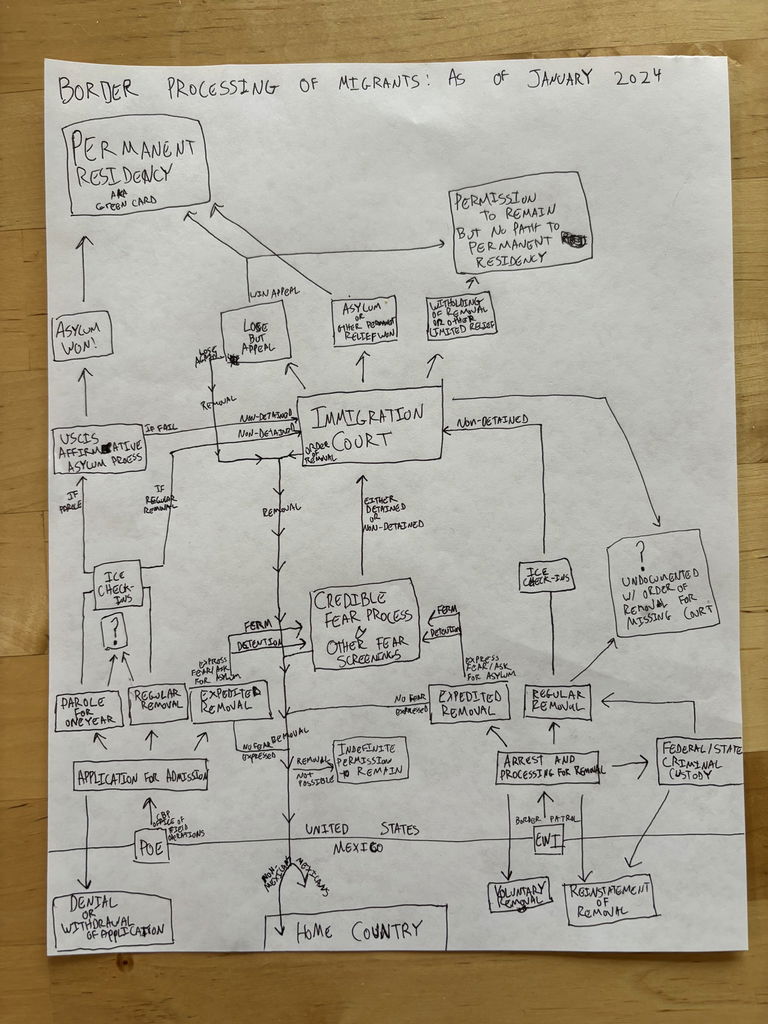 BORDER PROCESSING OF MIGRANTS: AS OF JANUARY 2024
PERMANENT
RESIDENCY
AKA
GREEN CARD
PERMISSION
TO REMAIN
BUT NO PATH TO
PERMANENT
RESIDENCY
WIN APPEAL
ASYLUM
WON!
LOSE
BUT
APPEAL
ASYLUM
OR
OTHER PERMANENT
RELIEF WON
WITHOLDING
OF REMOVAL
OR OTHER
LIMITED RELIEF
LOSE
APPEAL
REMOVAL
USCIS
AFFIRMATIVE
ASYLUM PROCESS
IF FAIL
NON-DETAINED
NON-DETAINED
IMMIGRATION
COURT
ORDER
OF
REMOVAL
NON-DETAINED
IF
PAROLE
IF
REGULAR
REMOVAL
REMOVAL
EITHER
DETAINED
OR
NON-DETAINED
ICE
CHECK-
INS
?
ICE
CHECK-INS
?
UNDOCUMENTED
W/ ORDER OF
REMOVAL FOR
MISSING COURT
CREDIBLE
FEAR PROCESS
&
OTHER FEAR
SCREENINGS
FERM
DETENTION
FERM
DETENTION
EXPRESS
FEAR/ASK
FOR ASYLUM
EXPRESS
FEAR/ASK
FOR ASYLUM
PAROLE
FOR
ONE YEAR
REGULAR
REMOVAL
EXPEDITED
REMOVAL
NO FEAR
EXPRESSED
EXPEDITED
REMOVAL
REGULAR
REMOVAL
NO FEAR
EXPRESSED
REMOVAL
REMOVAL
NOT
POSSIBLE
INDEFINITE
PERMISSION
TO REMAIN
APPLICATION FOR ADMISSION
ARREST AND
PROCESSING FOR REMOVAL
FEDERAL/STATE
CRIMINAL
CUSTODY
CBP
OFFICE OF
FIELD
OPERATIONS
BORDER PATROL
POE
UNITED STATES
MEXICO
EWI
NON-
MEXICANS
MEXICANS
DENIAL
OR
WITHDRAWAL
OF APPLICATION
HOME COUNTRY
VOLUNTARY
REMOVAL
REINSTATEMENT
OF
REMOVAL